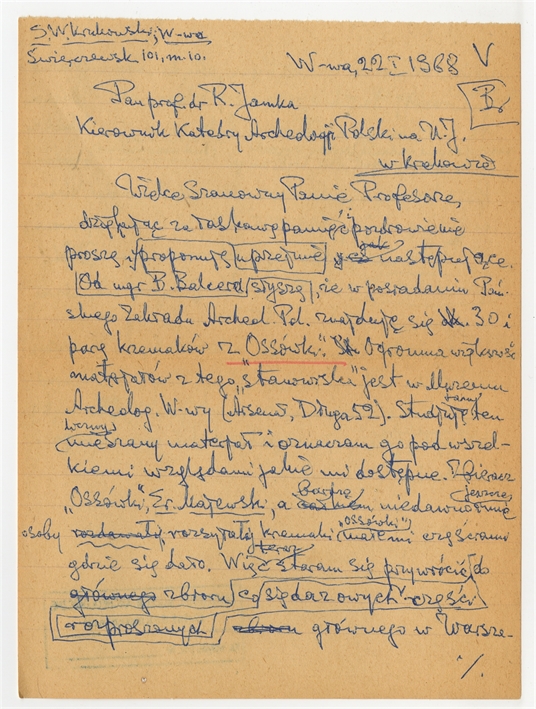 S. W. Krukowski, W-wa
Świerczewsk 101, m. 10.
W-wa, 22 I 1968 V
Br
Pan prof. dr R. Jamka
Kierownik Katedry Archeologji Polski na U. J.
w Krakowie
Wielce Szanowny Panie Profesorze,
dziękując za łaskawą pamięć i pozdrowienie
proszę i proponuję uprzejmie jak następujące.
Od mgr B. Balcera słyszę, że w posiadaniu Pań-
skiego Zakładu Archeol. Pol. znajdują się 30 i
parę krzemaków z "Ossówki". Ogromna większość
materjałów z tego "stanowiska" jest w Muzeum
Archeolog. W-wy (Arsenał, Długa 52). Studjuję ten
mieszany materjał i oznaczam go pod wszel-
kiemi względami jakie mi dostępne. Zbieracz
"Ossówki", Er. Majewski, a bardzo niedawno jeszcze inne
osoby rozdawały, rozsyłały krzemaki "Ossówki" małemi częściami
gdzie się dało. Więc teraz staram się przywrócić do
głównego zbioru co się da z owych części
rozproszonych zbioru głównego w Warsza-
./.